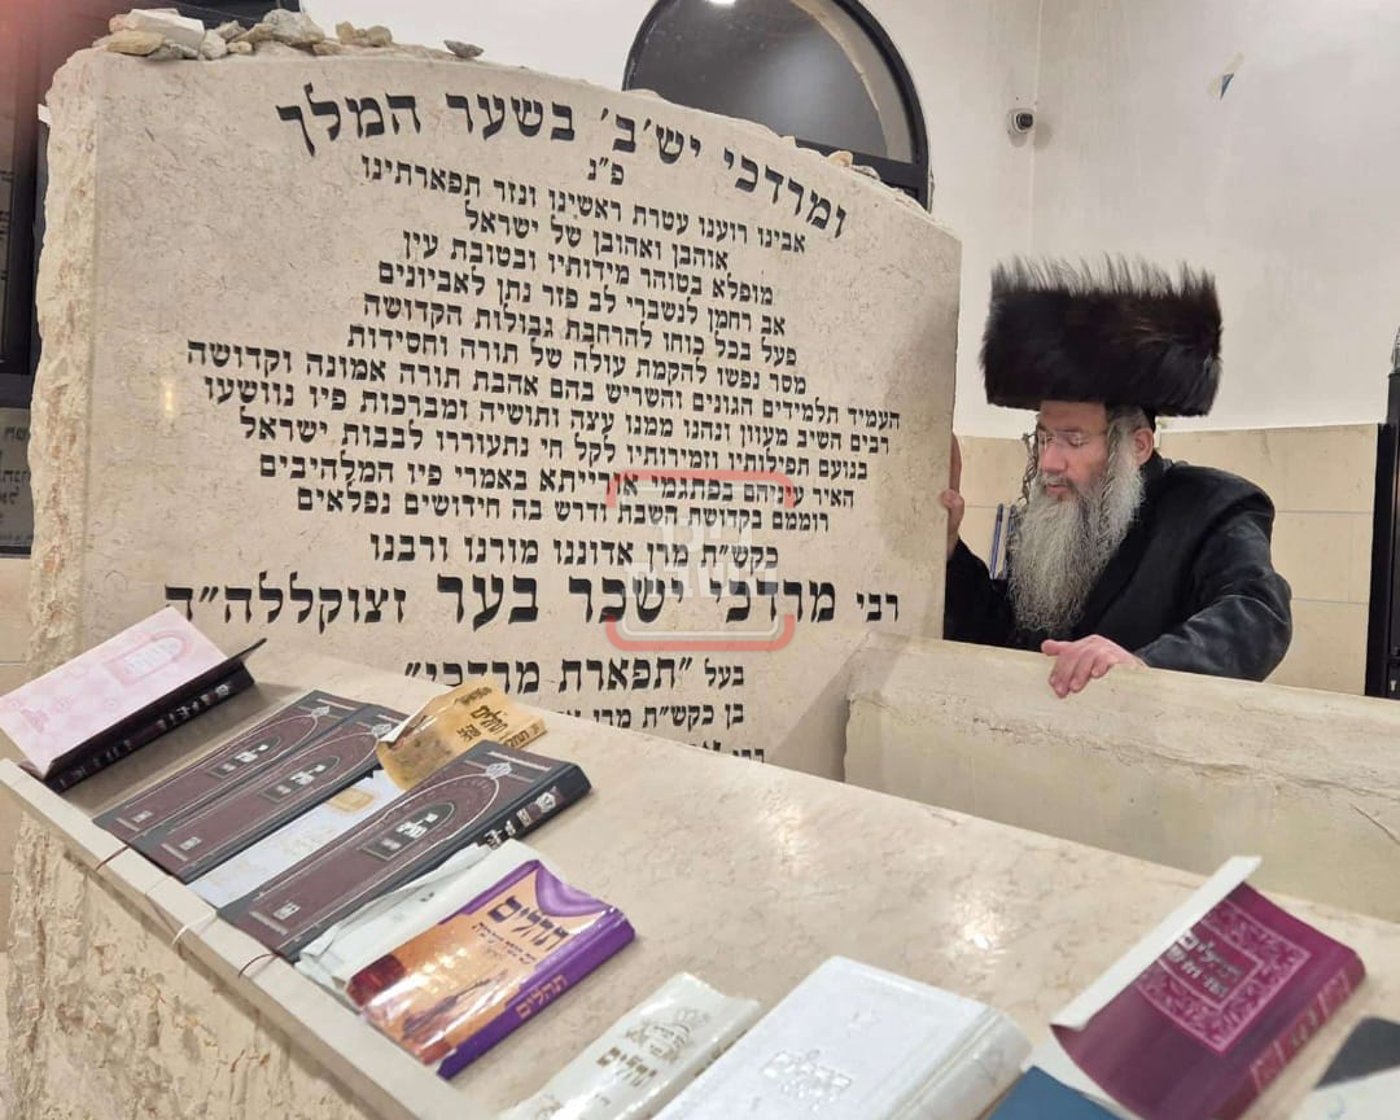 ומרדכי יש'ב' בשער המלך
פ"נ
אבינו רוענו עטרת ראשינו ונזר תפארתינו
אוהבן ואהובן של ישראל
מופלא בטוהר מידותיו ובטובת עין
אב רחמן לנשברי לב פזר נתן לאביונים
פעל בכל כוחו להרחבת גבולות הקדושה
מסר נפשו להקמת עולה של תורה וחסידות
העמיד תלמידים הגונים והשריש בהם אהבת תורה אמונה וקדושה
רבים השיב מעוון ונהנו ממנו עצה ותושיה ומברכות פיו נוושעו
בנועם תפילותיו וזמירותיו לקל חי נתעוררו לבבות ישראל
האיר עיניהם בפתגמי אורייתא באמרי פיו המלהיבים
רוממם בקדושת השבת ודרש בה חידושים נפלאים
כקש"ת מרן אדוננו מורנו ורבנו
רבי מרדכי ישכר בער זצוקללה"ה
בעל "תפארת מרדכי"
בן כקש"ת מרן
תהלים
תהלים
תהלים
תהלים
תהלים